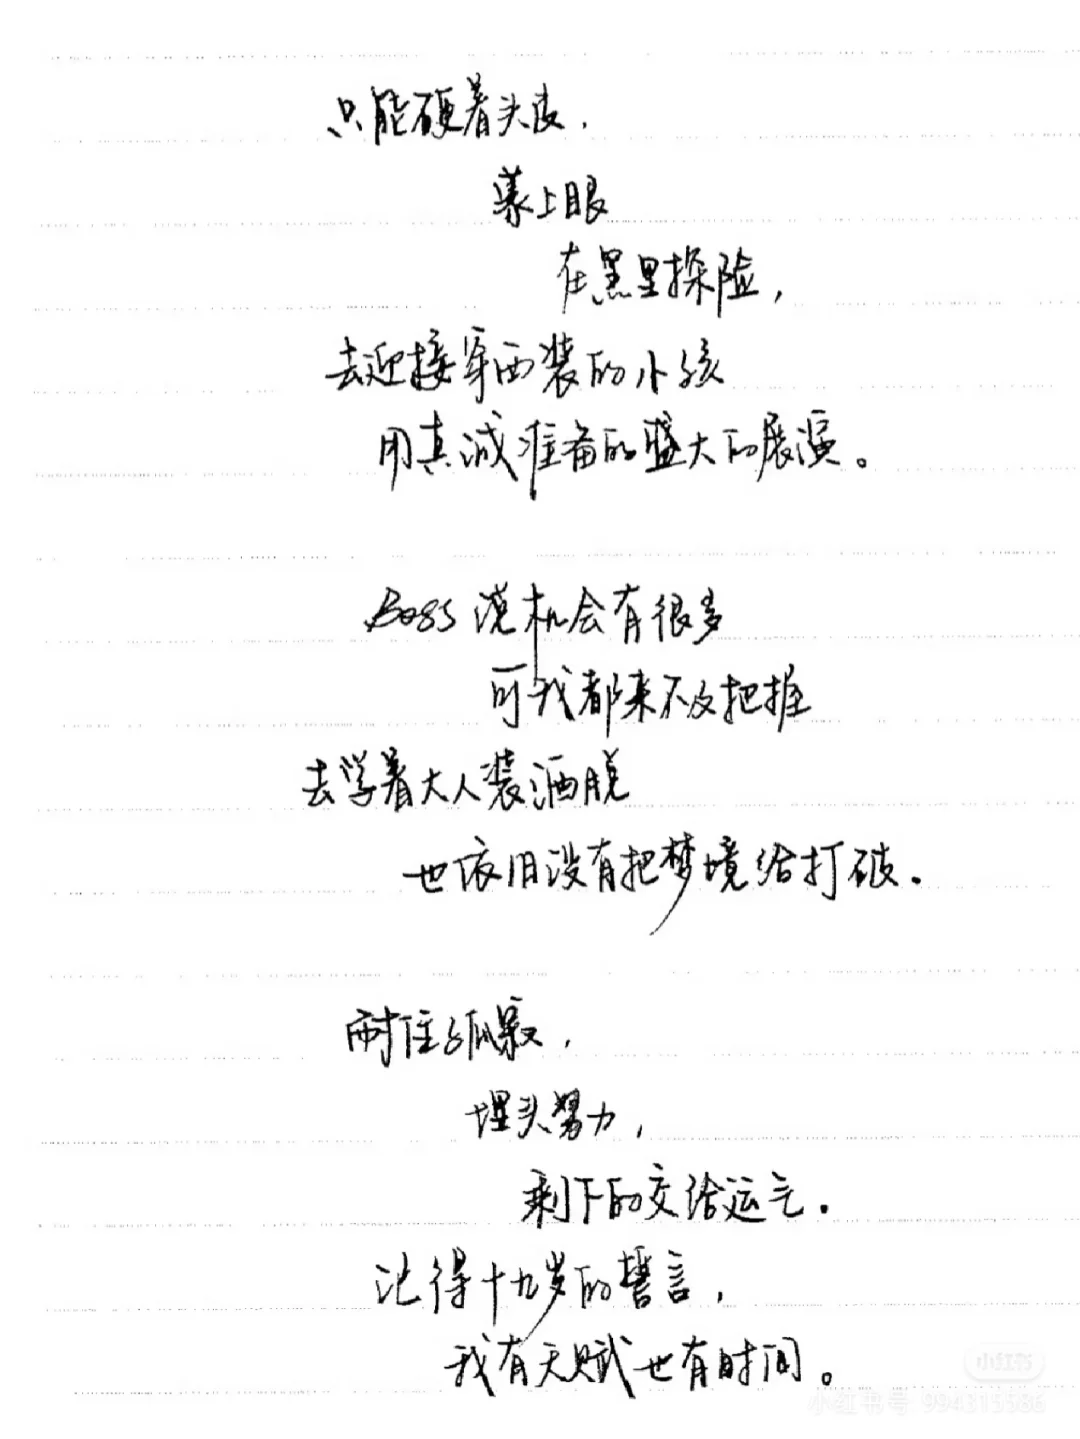 只能硬着头皮,
蒙上眼
在黑里探险,
去迎接穿西装的小孩
用真诚准备的盛大的展演。
Boss说机会有很多
可我都来不及把握
去学着大人装洒脱
也依旧没有把梦境给打破.
耐住孤寂,
埋头努力,
剩下的交给运气.
记得十九岁的誓言,
我有天赋也有时间。
小红书
小红书号: 994315586